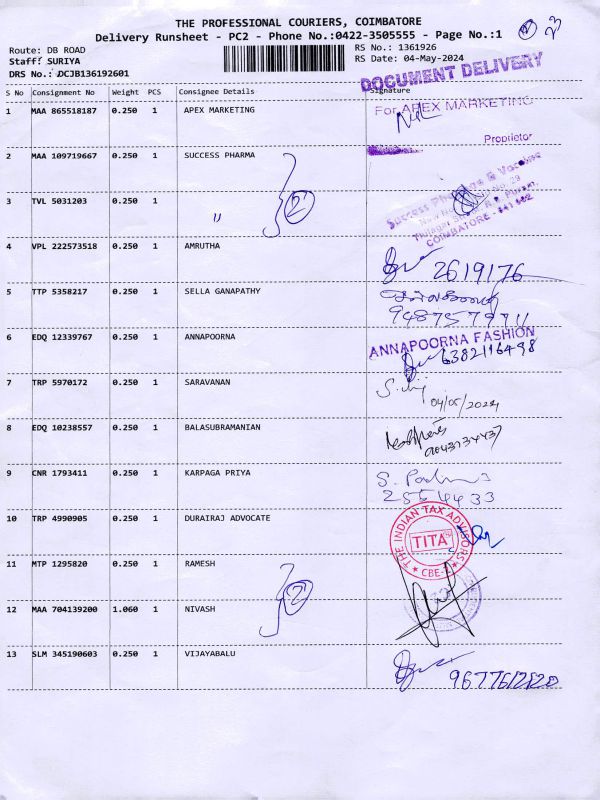 THE PROFESSIONAL COURIERS, COIMBATORE
Delivery Runsheet - PC2 - Phone No.:0422-3505555 - Page No.:1
Route: DB ROAD
Staff: SURIYA
DRS No.: DCJB136192601
RS No.: 1361926
RS Date: 04-May-2024
DOCUMENT DELIVERY
S No Consignment No Weight PCS Consignee Details Signature
1 MAA 865518187 0.250 1 APEX MARKETING
For APEX MARKETING
Proprietor
2 MAA 109719667 0.250 1 SUCCESS PHARMA
2
3 TVL 5031203 0.250 1 "
COIMBATORE - 641 002
4 VPL 222573518 0.250 1 AMRUTHA
2619176
5 TTP 5358217 0.250 1 SELLA GANAPATHY
9487579711
6 EDQ 12339767 0.250 1 ANNAPOORNA
ANNAPOORNA FASHION
6382116498
7 TRP 5970172 0.250 1 SARAVANAN
04/05/2024
8 EDQ 10238557 0.250 1 BALASUBRAMANIAN
9043134437
9 CNR 1793411 0.250 1 KARPAGA PRIYA
2554433
10 TRP 4990905 0.250 1 DURAIRAJ ADVOCATE
THE INDIAN TAX ADVISORS
TITA
CBE-2
11 MTP 1295820 0.250 1 RAMESH
2
12 MAA 704139200 1.060 1 NIVASH
13 SLM 345190603 0.250 1 VIJAYABALU
9677612120